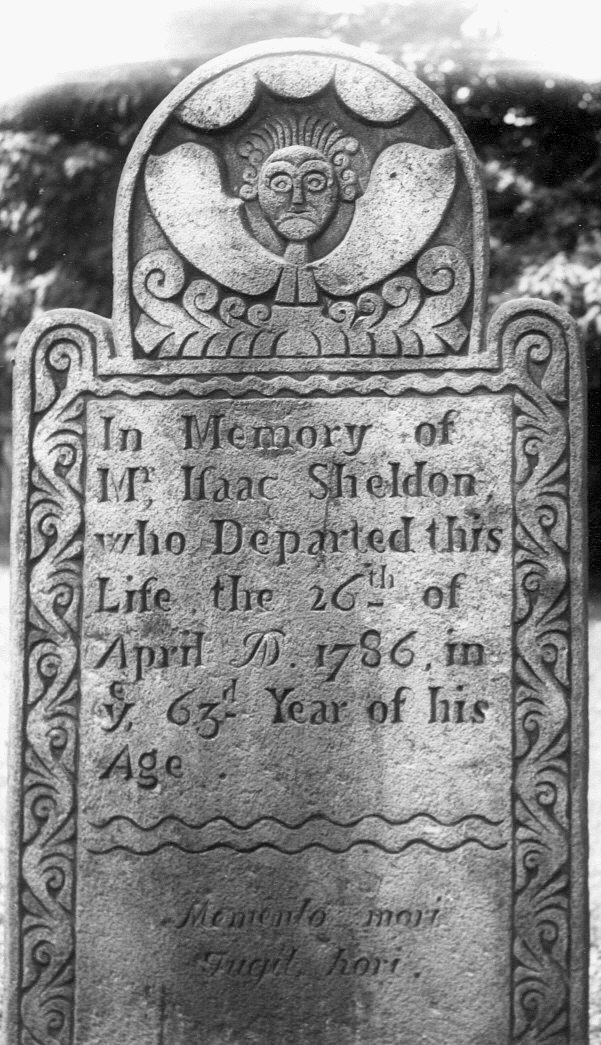 In Memory of
Mr, Iſaac Sheldon,
who Departed this
Life the 26th of
April AD. 1786, in
ye, 63d Year of his
Age.
Memento mori
Fugit hori.